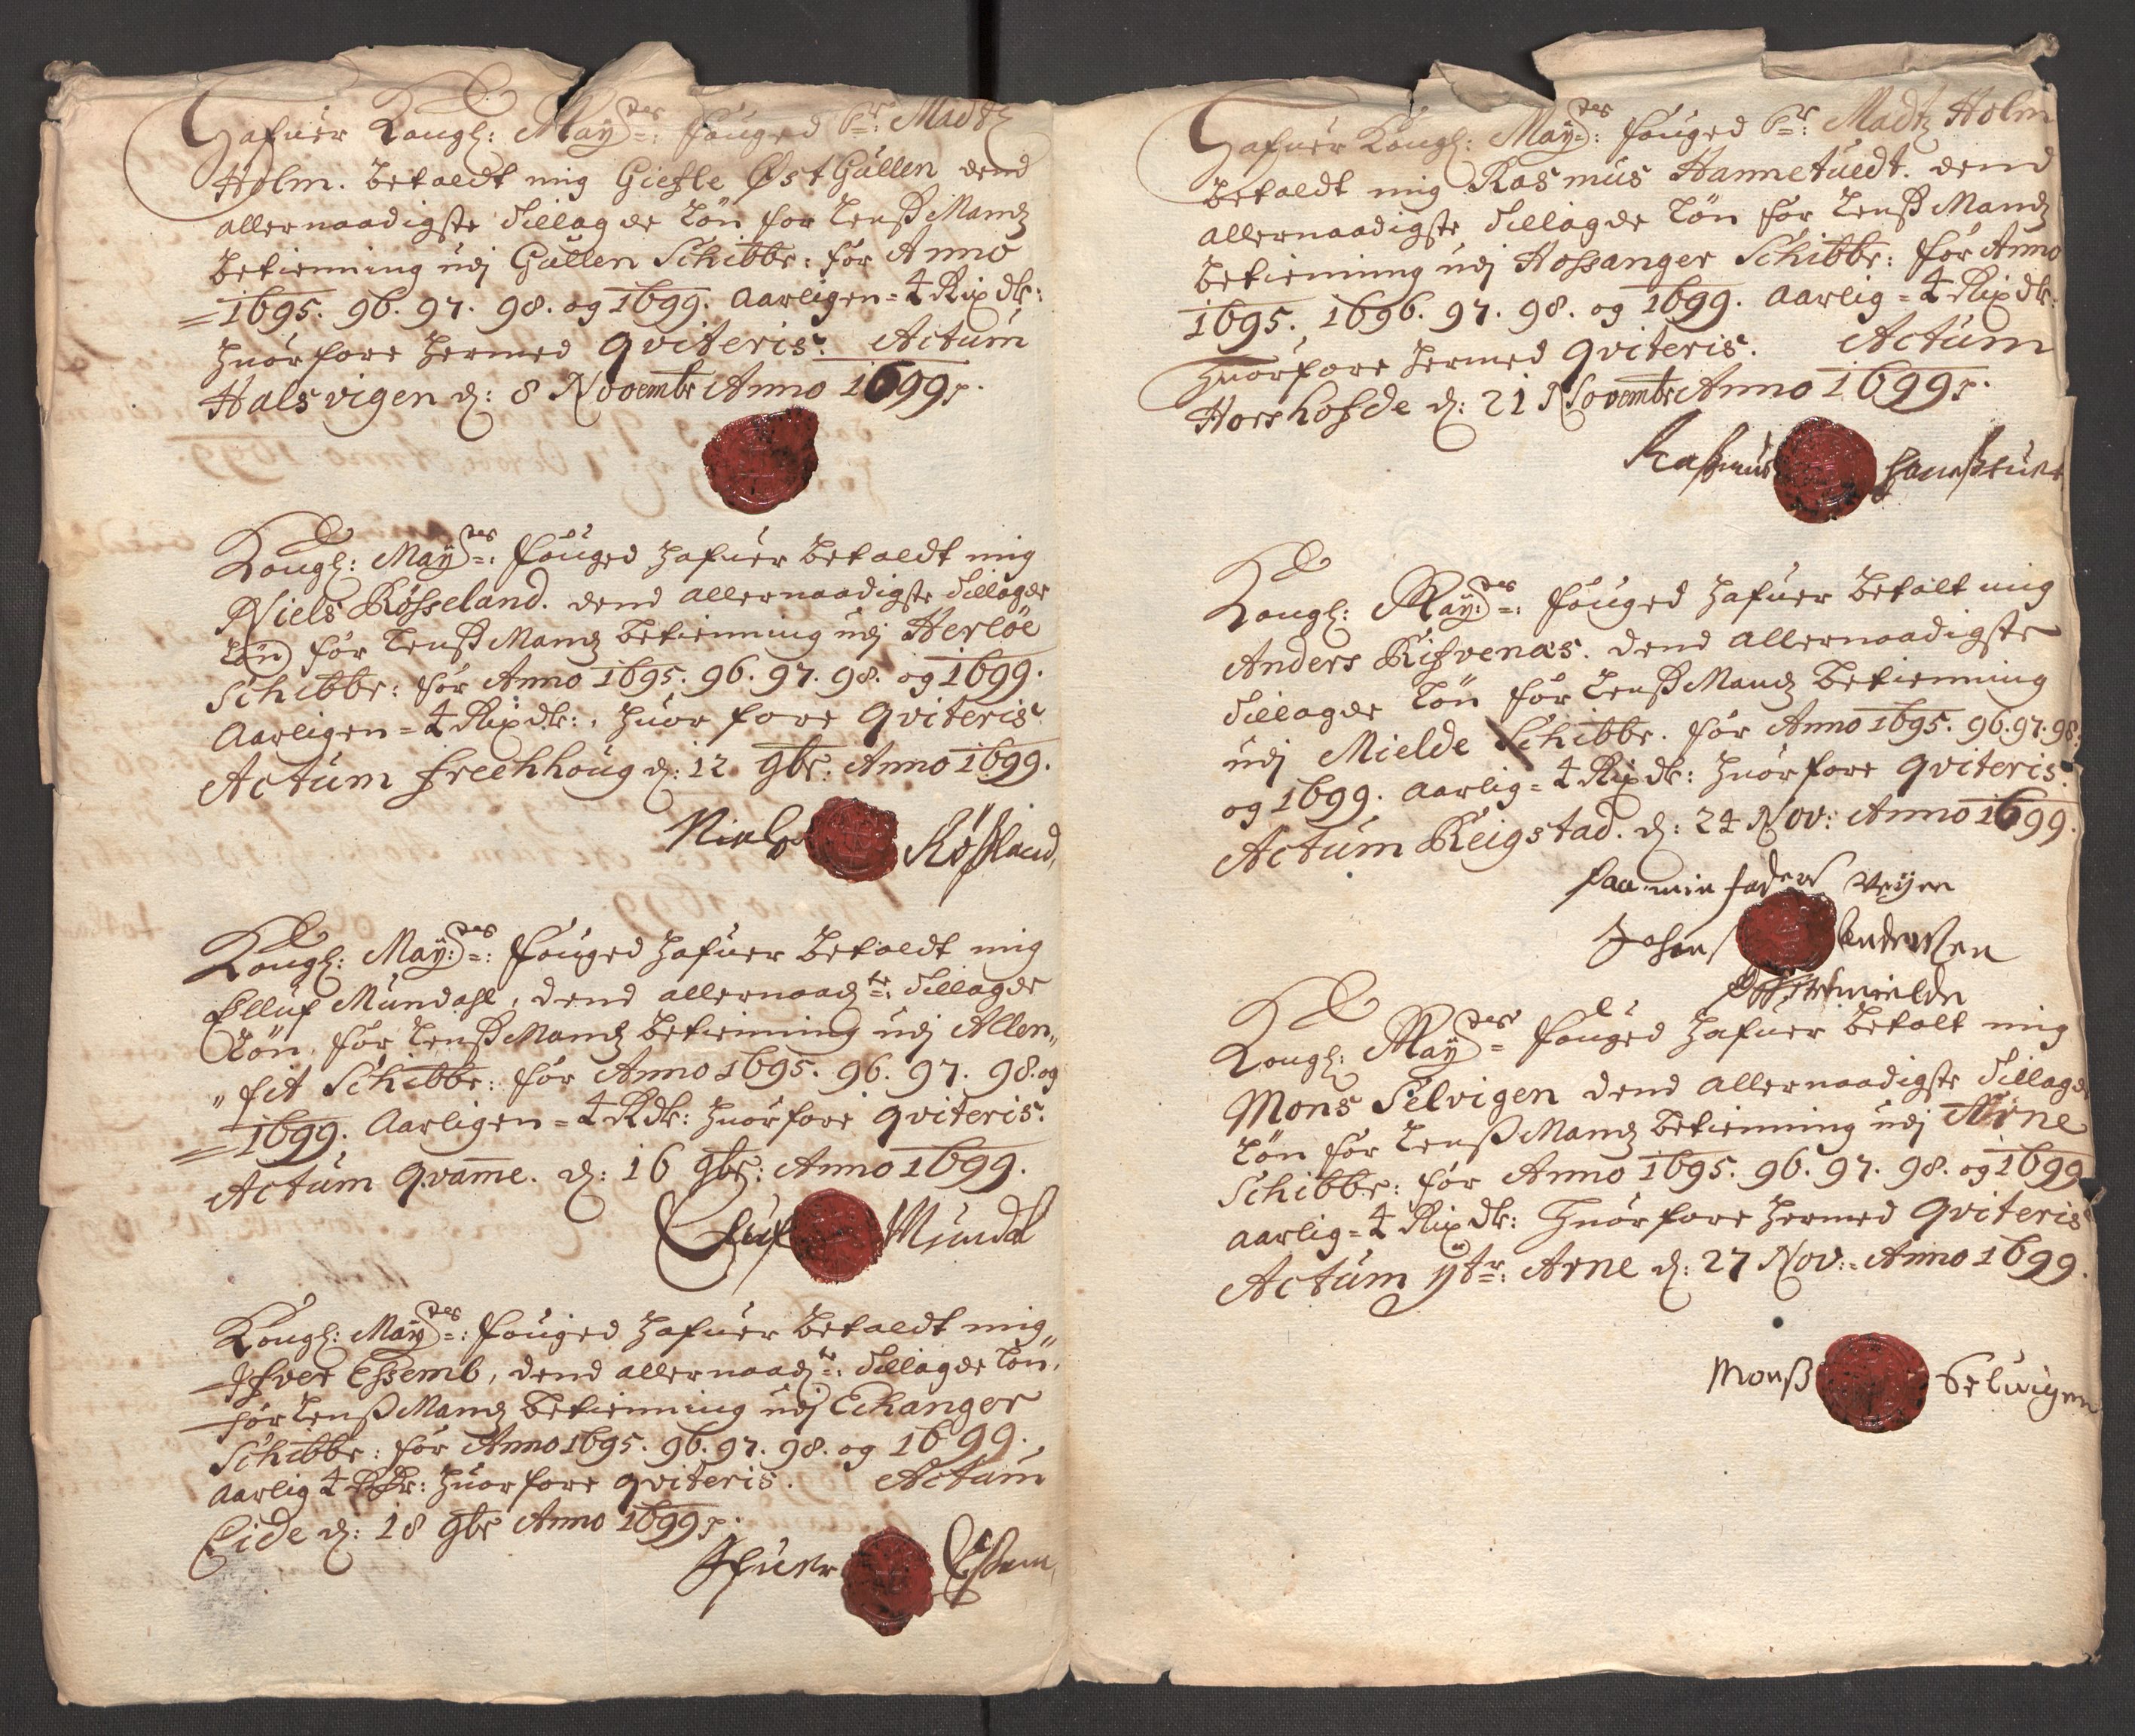 Hafuer Kongl: May:tes: fouged Sr: Madtz
Holm. betaeldt mig Giefle Øst Gullen dend
allernaadigste Tillagde Løn for Lenßmandz
betienning udj Gullen Schibbr: for Anno
1695. 96. 97. 98. og 1699. aarligen = 4 Rixdlr:
huorfore hermed qviteris. Actum
Halsvigen d: 8 Novembr Anno 1699.
Kongl: May:tes: fouged hafuer betaeldt mig
Niels Røsseland. dend allernaadigste Tillagde
Løn for Lenßmandz betienning udj Herløe
Schibbr: for Anno 1695. 96. 97. 98. og 1699.
aarligen = 4 Rixdlr:, huorfore qviteris
Actum freehhoug d: 12 9br: Anno 1699.
Niels Rößland
Kongl: May:tes: fouged hafuer betaeldt mig
Elluf Mundahl, dend allernaadte: Tillagde
Løn, for Lenßmandz betienning udj Allen„
„fit Schibbr: for Anno 1695. 96. 97. 98. og
1699. aarligen = 4 Rdlr: huorfore qviteris.
Actum qvame. d: 16 9br: Anno 1699.
Eluf Mundal
Kongl: May:tes: fouged hafuer betaeldt mig„
Ifver Essemb, dend allernaadte: Tillagde Løn,
for Lenßmandz betienning udj Echanger
Schibbr: for Anno 1695. 96. 97. 98. og 1699.
aarlig 4 Rdlr: huorfore qviteris. Actum
Eide d: 18 9br Anno 1699.
Ifuer Eßem
Hafuer Kongl: May:tes: fouged Sr: Madtz Holm
betaeldt mig Rasmus Hannetuedt. dend
allernaadigste Tillagde Løn for Lenßmandz
betienning udj Hossanger Schibbr: for Anno
1695. 1696. 97. 98. og 1699. aarlig = 4 Rixdlr:
huorfore hermed qviteris. Actum
Horshofde d: 21 Novembr Anno 1699.
Raßmus
Kongl: May:tes: fouged hafuer betalt mig
Anders Risvenæs. dend allernaadigste
Tillagde Løn for Lenßmandz betienning
udj Mielde Schibbr. for Anno 1695. 96. 97. 98.
og 1699. aarlig = 4 Rixdlr: huorfore qviteris.
Actum Reigstad. d: 24 Nov: Anno 1699.
paa min faders veigen
Johans Anderßen
Kongl: May:tes fouged hafuer betalt mig
Mons Selvigen dend allernaadigste Tillagde
Løn for Lenßmandz betienning udj Arne
Schibbr: for Anno 1695. 96. 97. 98. og 1699
aarlig = 4 Rixdlr: huorfore hermed qviteris
Actum ytr: Arne d: 27 Nov: Anno 1699.
Monß Seluigen